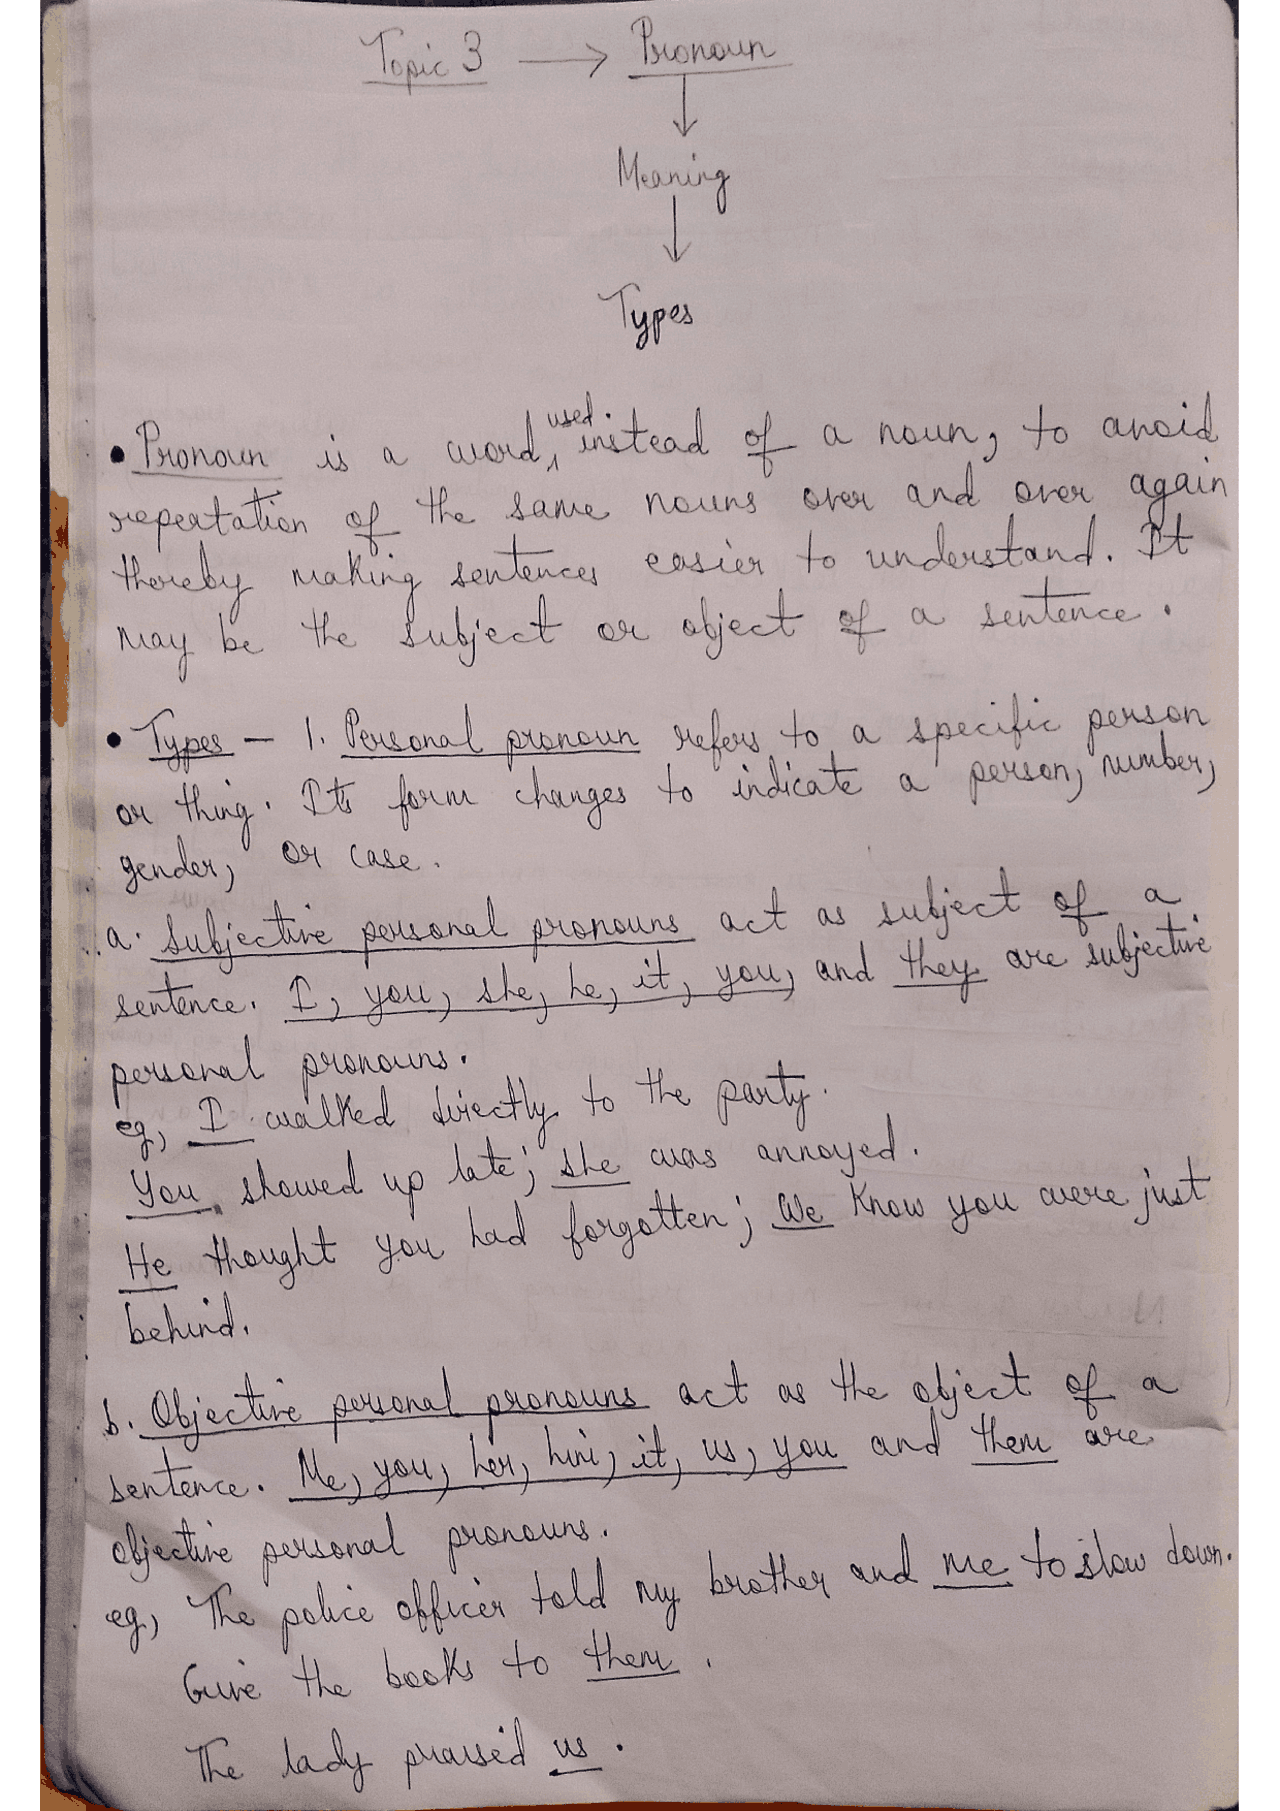 Topic 3 → Pronoun
Meaning
Types
• Pronoun is a word, used instead of a noun, to avoid
repeatation of the same nouns over and over again
thereby making sentences easier to understand. It
may be the subject or object of a sentence.
• Types — 1. Personal pronoun refers to a specific person
or thing. Its form changes to indicate a person, number,
gender, or case.
a. Subjective personal pronouns act as subject of a
sentence. I, you, she, he, it, you, and they are subjective
personal pronouns.
eg, I walked directly to the party.
You showed up late; she was annoyed.
He thought you had forgotten; We know you were just
behind.
b. Objective personal pronouns act as the object of a
sentence. Me, you, her, him, it, us, you and them are
objective personal pronouns.
eg, The police officer told my brother and me to slow down.
Give the books to them.
The lady praised us.